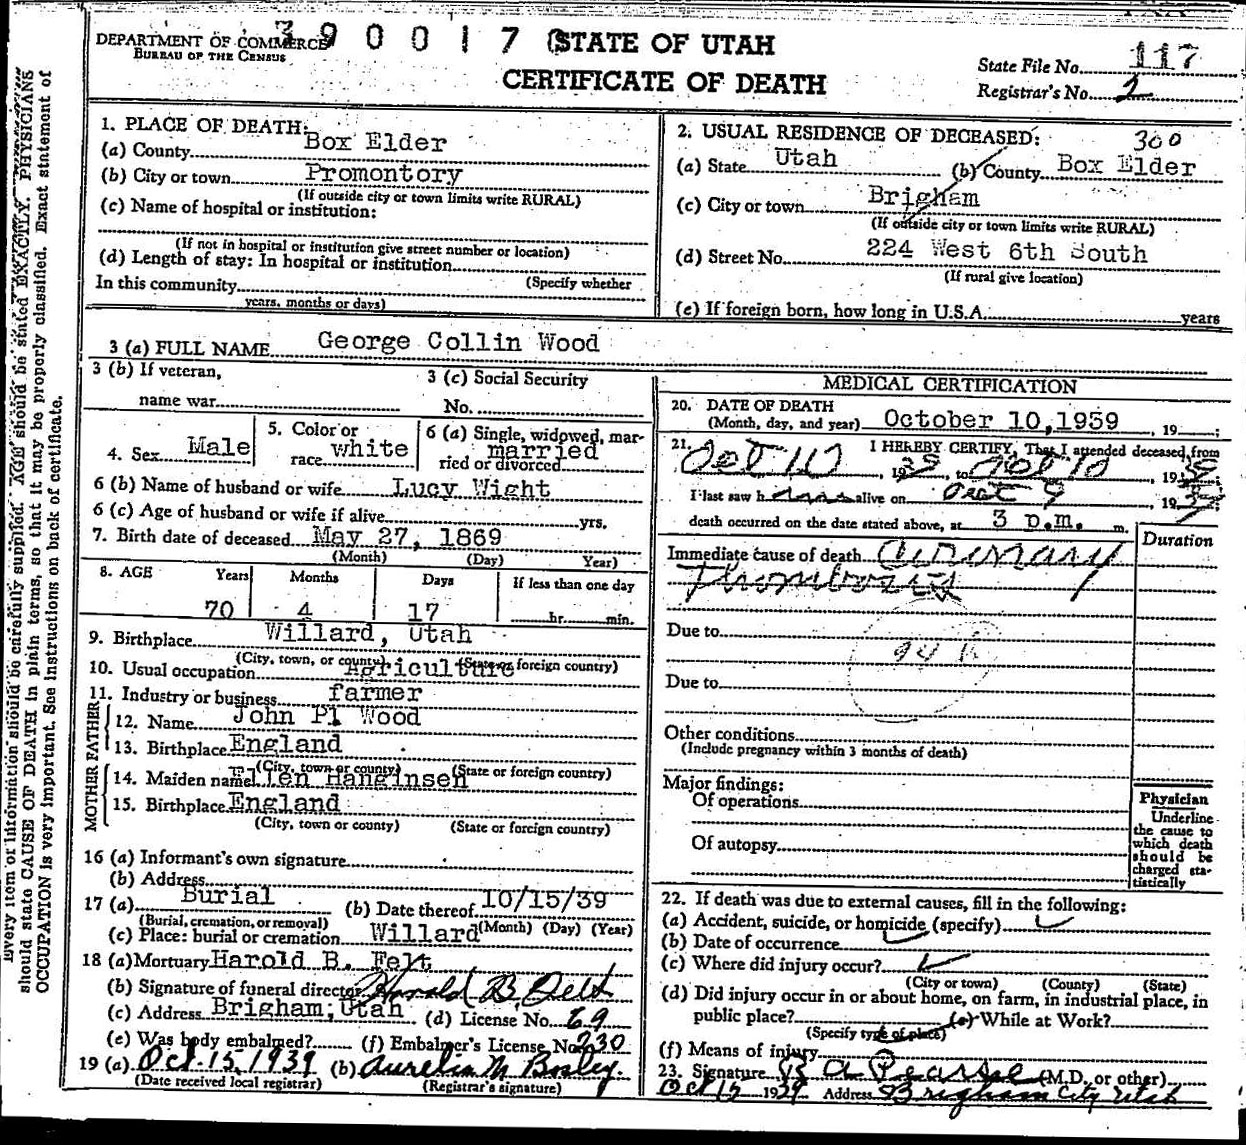 DEPARTMENT OF COMMERCE
BUREAU OF THE CENSUS
390017
STATE OF UTAH
CERTIFICATE OF DEATH
State File No. 117
Registrar's No. 2
Every item of information should be carefully supplied. AGE should be stated EXACTLY. PHYSICIANS
should state CAUSE OF DEATH in plain terms, so that it may be properly classified. Exact statement of
OCCUPATION is very important. See instructions on back of certificate.
1. PLACE OF DEATH:
(a) County Box Elder
(b) City or town Promontory
(If outside city or town limits write RURAL)
(c) Name of hospital or institution:
(If not in hospital or institution give street number or location)
(d) Length of stay: In hospital or institution
(Specify whether
In this community
years, months or days)
2. USUAL RESIDENCE OF DECEASED: 300
(a) State Utah (b) County Box Elder
(c) City or town Brigham
(If outside city or town limits write RURAL)
(d) Street No. 224 West 6th South
(If rural give location)
(e) If foreign born, how long in U.S.A. years
3 (a) FULL NAME George Collin Wood
3 (b) If veteran,
name war
3 (c) Social Security
No.
4. Sex Male
5. Color or
race white
6 (a) Single, widowed, mar-
ried or divorced married
6 (b) Name of husband or wife Lucy Wight
6 (c) Age of husband or wife if alive yrs.
7. Birth date of deceased May 27, 1869
(Month) (Day) Year)
8. AGE Years Months Days If less than one day
70 4 17 hr. min.
9. Birthplace Willard, Utah
(City, town, or county) (State or foreign country)
10. Usual occupation Agriculture
11. Industry or business farmer
FATHER
12. Name John Pl Wood
13. Birthplace England
(City, town or county) (State or foreign country)
MOTHER
14. Maiden name Ellen Hanginsen
15. Birthplace England
(City, town or county) (State or foreign country)
16 (a) Informant's own signature
(b) Address
17 (a) Burial (b) Date thereof 10/15/39
(Burial, cremation, or removal) (Month) (Day) (Year)
(c) Place: burial or cremation Willard
18 (a) Mortuary Harold B. Felt
(b) Signature of funeral director Harold B Felt
(c) Address Brigham, Utah (d) License No. 69
(e) Was body embalmed? (f) Embalmer's License No. 230
19 (a) Oct. 15, 1939 (b) Aurelia M Bosley.
(Date received local registrar) (Registrar's signature)
MEDICAL CERTIFICATION
20. DATE OF DEATH
(Month, day, and year) October 10,1959, 19 ;
21. I HEREBY CERTIFY, That I attended deceased from
Oct 10, 19 39, to Oct 10, 19 39;
I last saw h alive on Oct 9, 19 39;
death occurred on the date stated above, at 3 p.m. m.
Duration
Immediate cause of death Coronary
Thrombosis
Due to
94
Due to
Other conditions
(Include pregnancy within 3 months of death)
Major findings:
Of operations
Of autopsy
Physician
Underline
the cause to
which death
should be
charged sta-
tistically
22. If death was due to external causes, fill in the following:
(a) Accident, suicide, or homicide (specify)
(b) Date of occurrence
(c) Where did injury occur?
(City or town) (County) (State)
(d) Did injury occur in or about home, on farm, in industrial place, in
public place? (e) While at Work?
(Specify type of place)
(f) Means of injury
23. Signature R A Pearse (M.D. or other)
Oct 15 1939 Address Brigham City Utah